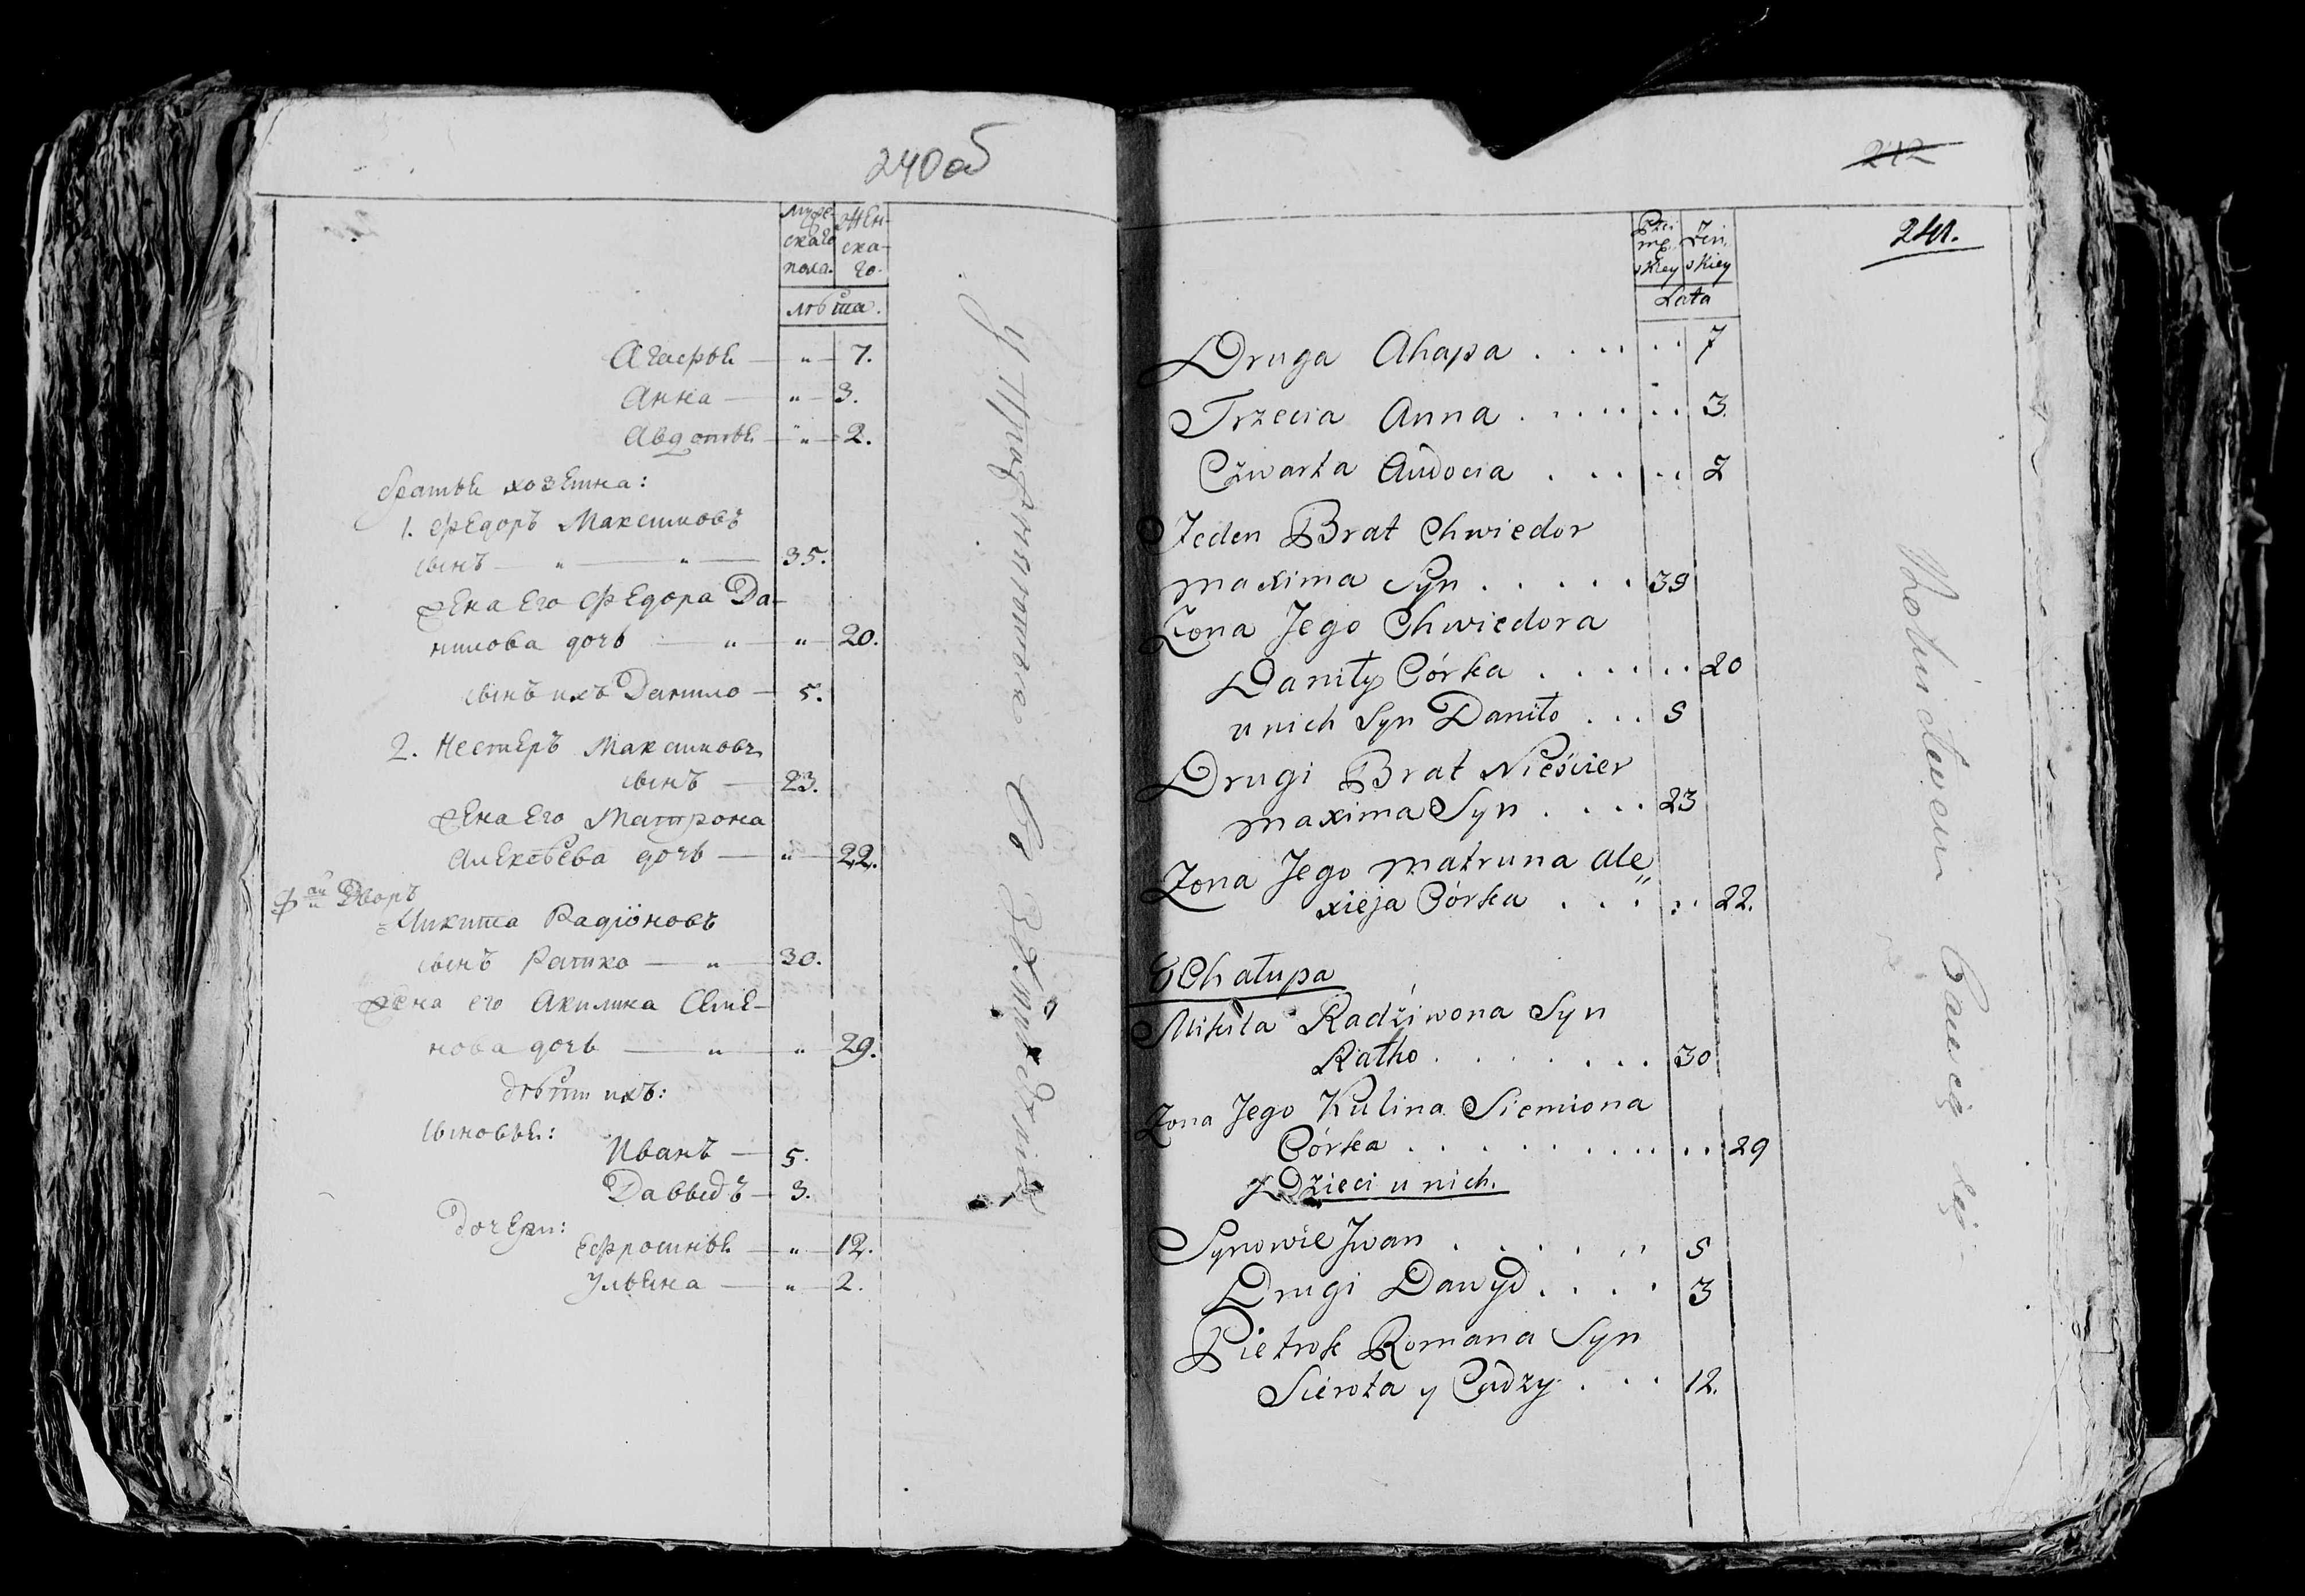 240об
муже-
скаго
пола.
Жен-
ска-
го.
лѣта.
Агафья — „ — 7.
Анна — „ — 3.
Авдотья — „ — 2.
братья хозяина:
1. Федоръ Максимовъ
сынъ — „ — „ — 35.
жена его Федора Да-
нилова дочь — „ — „ — 20.
сынъ ихъ Данило — 5.
2. Нестеръ Максимовъ
сынъ — 23.
жена его Матрона
Алексѣева дочь — „ — 22.
Дворъ
Микита Радіоновъ
сынъ Ратко — „ — 30.
жена его Акилина Семе-
нова дочь — „ — „ — 29.
дѣти ихъ:
сыновья:
Иванъ — 5.
Давыдъ — 3.
дочери:
Ефросинья — „ — 12.
Ульяна — „ — 2.
242
241.
Płci
mę
skiey
Żeń
skiey
Lata
Druga Ahapa . . . . . . 7
Trzecia Anna . . . . . . . 3.
Czwarta Audocia . . . . . 2
Jeden Brat Chwiedor
maxima Syn . . . . . 39
Żona Jego Chwiedora
Daniły Córka . . . . . . 20
u nich Syn Daniło . . . 5
Drugi Brat Nieścier
maxima Syn . . . . 23
Żona Jego matruna ale„
xieja Córka . . . . . 22.
8 Chałupa
Mikita Radźiwona Syn
Ratko . . . . . . . . 30
Żona Jego Kulina Siemiona
Córka . . . . . . . . . . . 29
Dzieci u nich.
Synowie Jwan . . . . . . 5
Drugi Dawyd . . . . 3
Pietrok Romana Syn
Sierota y Cudzy . . . 12.